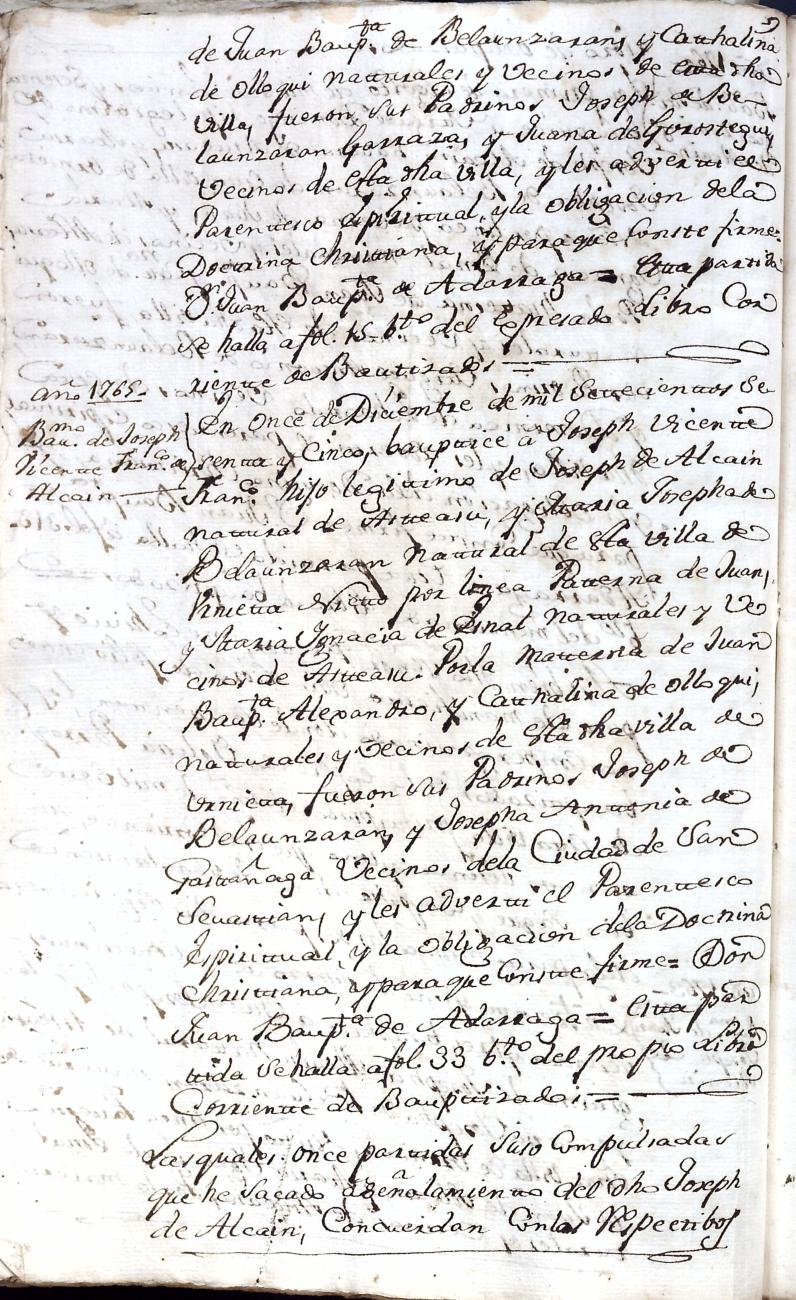 de Juan Baup.ta de Belaunzaran, y Cathalina
de olloqui naturales y vecinos de esta dha
villa, fueron sus Padrinos Joseph de Be-
launzaran Garraza, y Juana de Gorostegui,
vecinos de esta dha villa, y les adverti el
Parentesco espiritual, y la obligacion dela
Doctrina Christiana, y para que Conste firme=
D.n Juan Baup.ta de Adarraga = Esta partida
se halla afol. 15 b.to del expresado libro Cor
riente de Bautizados =
año 1765.
Bau.mo de Joseph
Vicente Fran.co de
Alcain
En once de Diciembre de mil setecientos se
senta y Cinco, bauptice à Joseph Vicente
Fran.co hijo legitimo de Joseph de Alcain
natural de Asteasu, y Maria Josepha de
Belaunzaran natural de esta villa de
Vrnieta Nieto por linea Paterna de Juan,
y Maria Ignacia de Zinal naturales y Ve
cinos de Asteasu. Por la materna de Juan
Baup.ta Alexandro, y Cathalina de olloqui,
naturales y vecinos de esta dha villa de
vrnieta, fueron sus Padrinos Joseph de
Belaunzaran, y Josepha Antonia de
Gastañaga Vecinos dela Ciudad de San
Sevastian, y les adverti el Parentesco
Espiritual, y la obligacion dela Doctrina
Christiana, y para que Conste firme= Don
Juan Baup.ta de Adarraga = Esta par
tida se halla afol. 33 b.to del propio Libro
Corriente de Bauptizados. =
Las quales once partidas suso Compulsadas
que he sacado a señalamiento del dho Joseph
de Alcain, Concuerdan Conlas Respectibas